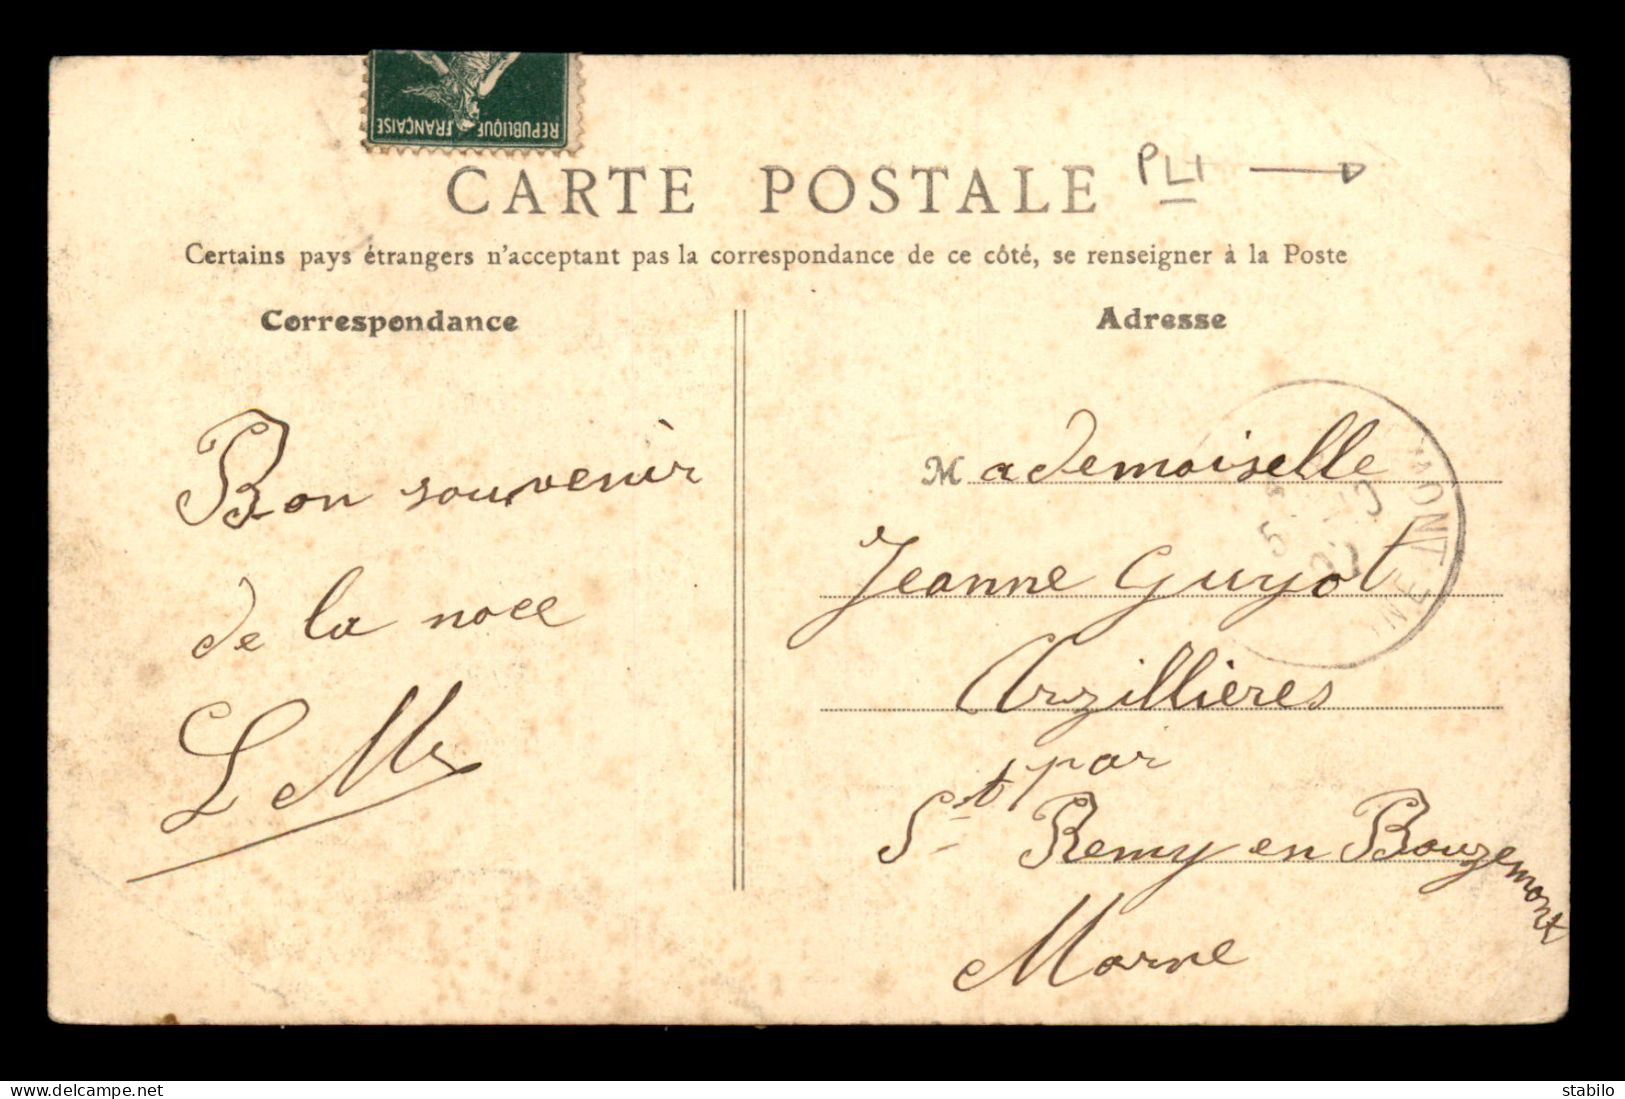 REPUBLIQUE FRANÇAISE
CARTE POSTALE
PLI
Certains pays étrangers n'acceptant pas la correspondance de ce côté, se renseigner à la Poste
Correspondance
Bon souvenir
de la noce
Adresse
Mademoiselle
Jeanne Guyot
Arzillières
par
St Remy en Bouzemont
Marne
stabilo
www.delcampe.net